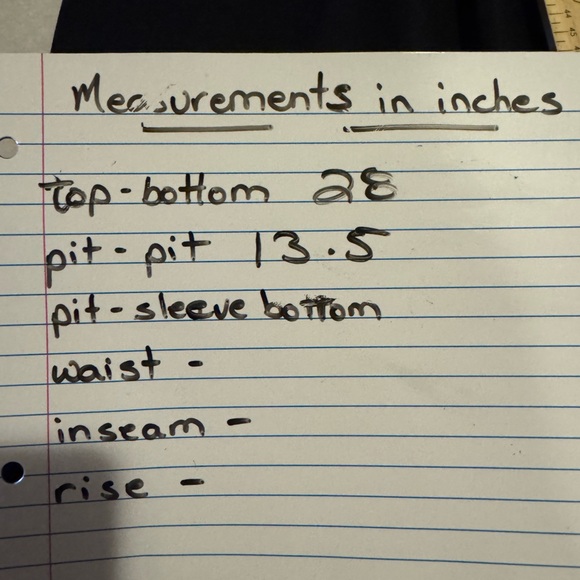 Measurements in inches
top-bottom 28
pit-pit 13.5
pit-sleeve bottom
waist -
inseam -
rise -